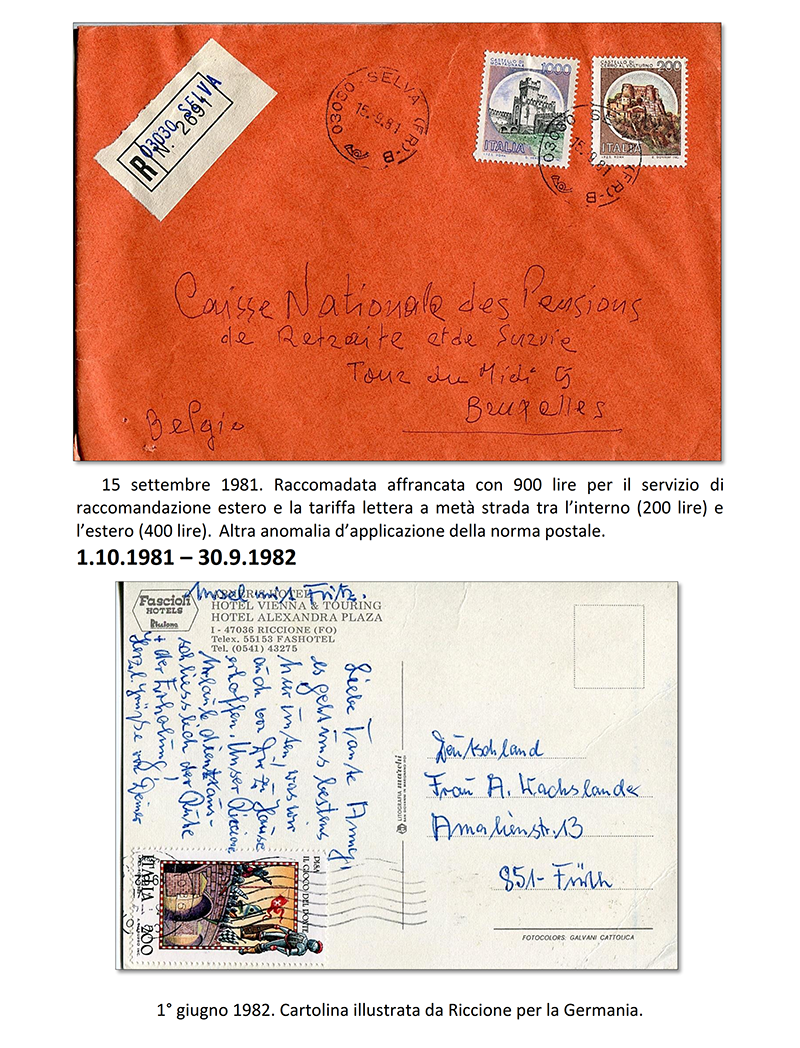 R
03030 SELVA
N. 2694
03030 SELVA (FR)-B
15.9.81
CASTELLO DI
MONTAGNANA
1000
ITALIA
CASTELLO DI
CERRO AL VOLTURNO
200
ITALIA
03030 SELVA (FR)-B
15.9.81
Caisse Nationale des Pensions
de Retraite et de Survie
Tour du Midi 5
Bruxelles
Belgio
15 settembre 1981. Raccomadata affrancata con 900 lire per il servizio di
raccomandazione estero e la tariffa lettera a metà strada tra l’interno (200 lire) e
l’estero (400 lire). Altra anomalia d’applicazione della norma postale.
1.10.1981 – 30.9.1982
Fascioli
HOTELS
Riccione
HOTEL VIENNA & TOURING
HOTEL ALEXANDRA PLAZA
I - 47036 RICCIONE (FO)
Telex. 55153 FASHOTEL
Tel. (0541) 43275
Liebe Tante Anny,
es geht uns bestens
hier unten, was wir
auch von Dir zu Hause
erhoffen. Unser Riccione
Urlaub dient
schliesslich der Ruhe
+ der Erholung!
Herzl. Grüße von Deiner
Fritz.
PISA
IL GIOCO DEL PONTE
ITALIA 200
Deutschland
Frau A. Wachslander
Amalienstr. 13
851- Fürth
FOTOCOLORS: GALVANI CATTOLICA
1° giugno 1982. Cartolina illustrata da Riccione per la Germania.